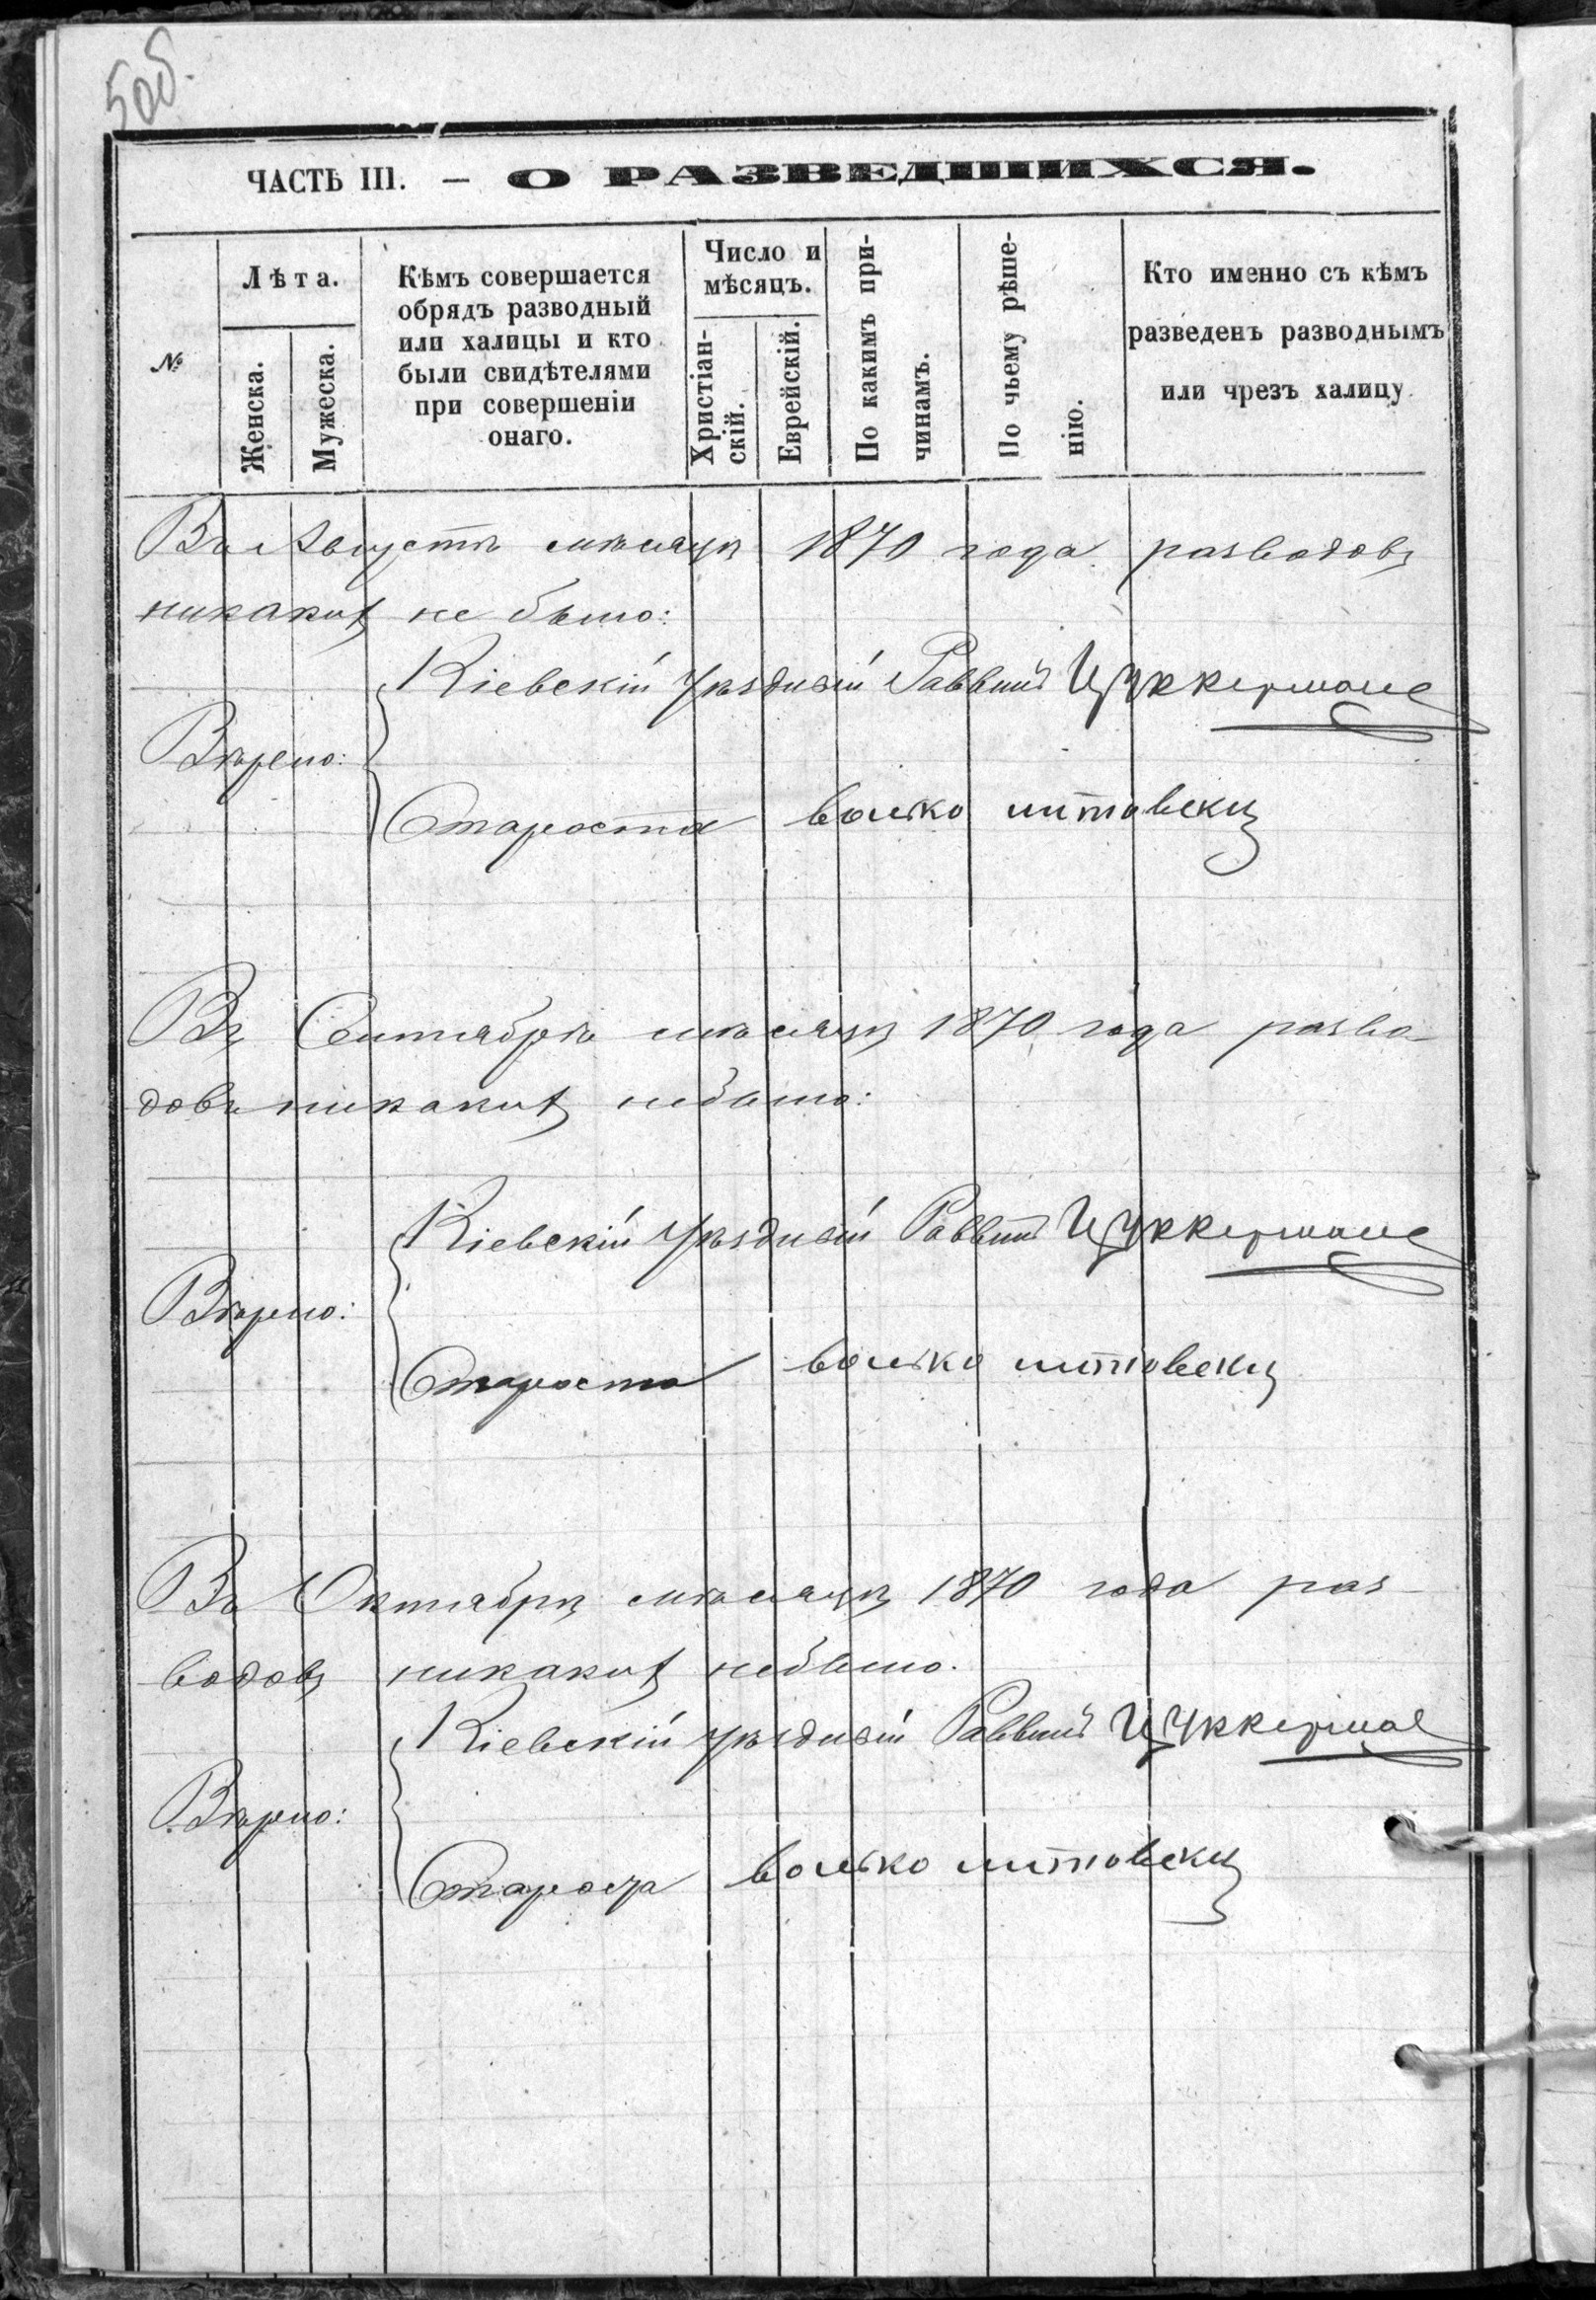 5об.
ЧАСТЬ III. — О РАЗВЕДШИХСЯ.
№
Лѣта.
Женска.
Мужеска.
Кѣмъ совершается
обрядъ разводный
или халицы и кто
были свидѣтелями
при совершеніи
онаго.
Число и
мѣсяцъ.
Христіан-
скій.
Еврейскій.
По какимъ при-
чинамъ.
По чьему рѣше-
нію.
Кто именно съ кѣмъ
разведенъ разводнымъ
или чрезъ халицу
Въ Августѣ мѣсяцѣ 1870 года разводовъ
никакихъ не было:
Кіевскій Уѣздный Раввинъ Цуккерманъ
Вѣрно:
Староста волько литовскій
Въ Сентябрѣ мѣсяцѣ 1870 года разво-
довъ никакихъ небыло:
Кіевскій Уѣздный Раввинъ Цуккерманъ
Вѣрно:
Староста волько литовскій
Въ Октябрѣ мѣсяцѣ 1870 года раз-
водовъ никакихъ небыло.
Кіевскій Уѣздный Раввинъ Цуккерманъ
Вѣрно:
Староста волько литовскій